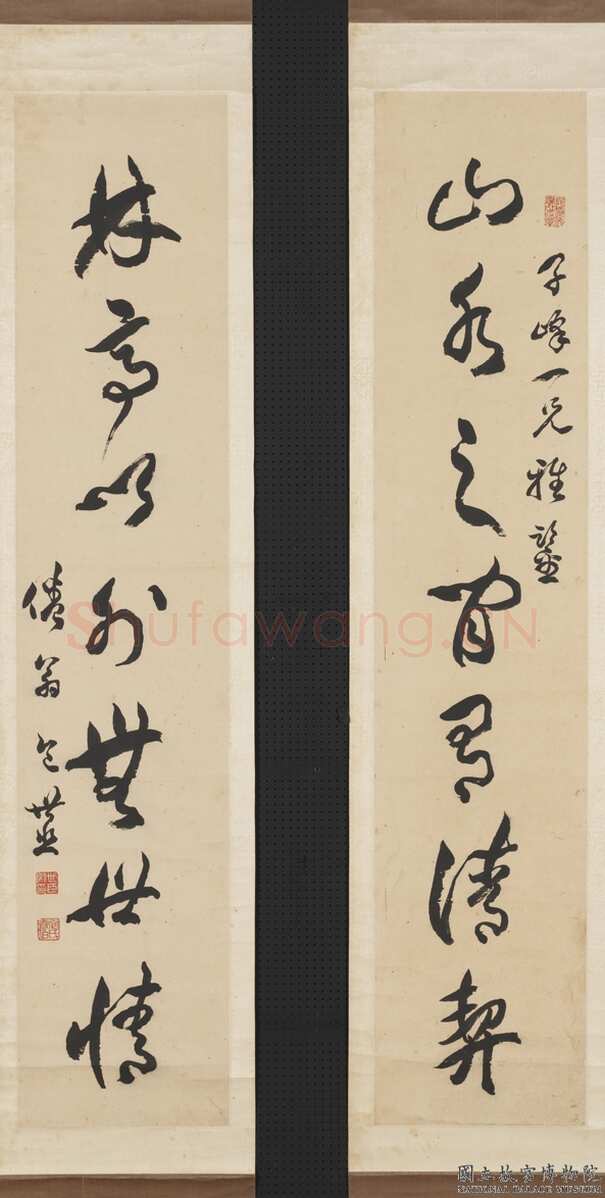 子峰一兄雅鑒
山水之間有清契
林亭以外無世情
倦翁包世臣
Shufawang.CN
國立故宮博物院
NATIONAL PALACE MUSEUM